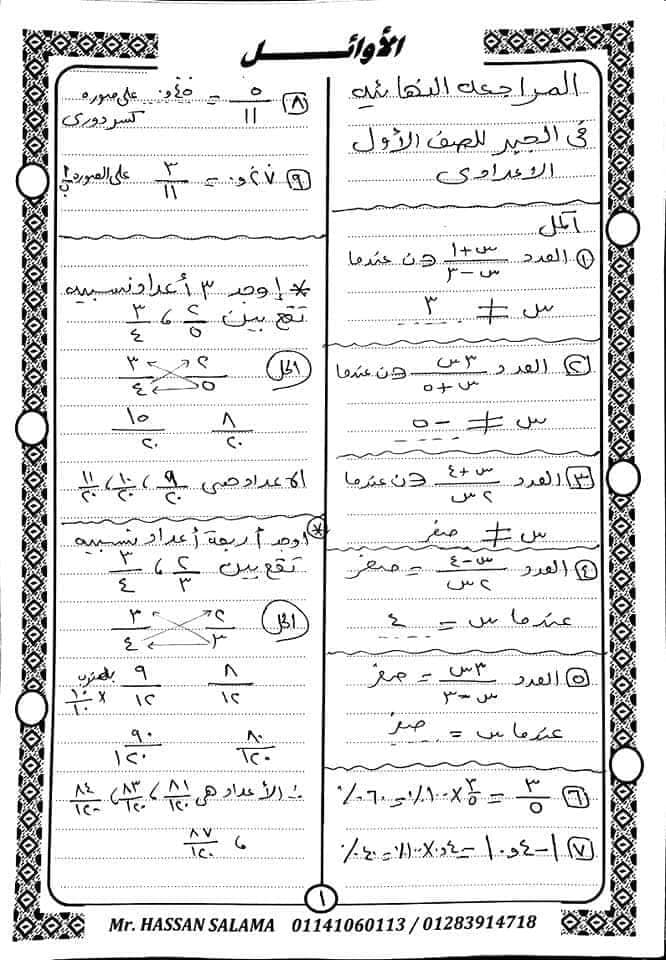 الأوائل
المراجعة النهائية
فى الجبر للصف الأول
الإعدادى
أكمل
١ العدد (س + ١)/(س − ٣) ∈ ن عندما
س ≠ ٣
٢ العدد ٣س/(س + ٥) ∈ ن عندما
س ≠ −٥
٣ العدد (س + ٤)/٢س ∈ ن عندما
س ≠ صفر
٤ العدد (س − ٤)/٢س = صفر
عندما س = ٤
٥ العدد ٣س/(س − ٣) = صفر
عندما س = صفر
٦ ٣/٥ = ٣/٥ × ١٠٠٪ = ٦٠٪
٧ |−٠,٤| = ٠,٤ × ١٠٠٪ = ٤٠٪
٨ ٥/١١ = ٠,٤٥ على صوره
كسر دورى
٩ ٠,٢٧ = ٣/١١ على الصورة أ/ب
* إوجد ٣ أعداد نسبيه
تقع بين ٢/٥ ، ٣/٤
الحل
٢/٥ ٣/٤
٨/٢٠ ١٥/٢٠
الاعداد هى ٩/٢٠ ، ١٠/٢٠ ، ١١/٢٠
* اوجد أربعة أعداد نسبيه
تقع بين ٢/٣ ، ٣/٤
الحل
٢/٣ ٣/٤
٨/١٢ ٩/١٢ بالضرب × ١٠/١٠
٨٠/١٢٠ ٩٠/١٢٠
∴ الأعداد هى ٨١/١٢٠ ، ٨٣/١٢٠ ، ٨٤/١٢٠
، ٨٧/١٢٠
١
Mr. HASSAN SALAMA 01141060113 / 01283914718